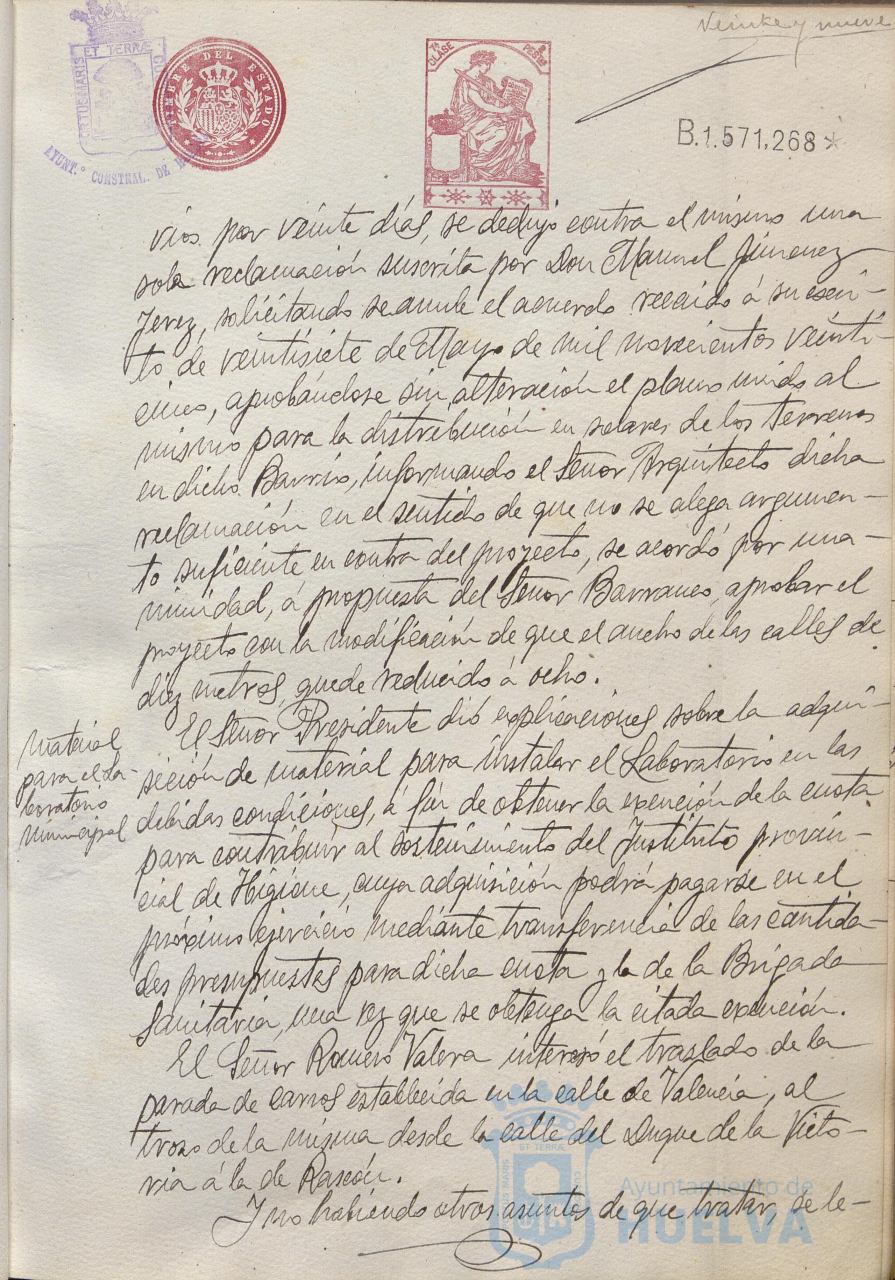 Veinte y nueve
PORTUS MARIS ET TERRÆ CUSTODIA
AYUNT.º CONSTNAL. DE HUELVA
TIMBRE DEL ESTADO
7ª CLASE 8 PESTAS
B.1.571,268 *
vios por veinte días, se dedujo contra el mismo una
sola reclamación suscrita por Don Manuel Jimenez
Jerez, solicitando se anule el acuerdo recaido á su escri-
to de veintisiete de Mayo de mil novecientos veinti-
cinco, aprobándose sin alteración el plano unido al
mismo para la distribución en solares de los terrenos
en dicho Barrio, informando el Señor Arquitecto dicha
reclamación en el sentido de que no se alega argumen-
to suficiente en contra del proyecto, se acordó por una-
nimidad, á propuesta del Señor Barranco, aprobar el
proyecto con la modificación de que el ancho de las calles de
diez metros, quede reducido á ocho.
Material
para el La-
boratorio
Municipal
El Señor Presidente dió explicaciones sobre la adqui-
sición de material para instalar el Laboratorio en las
debidas condiciones, á fin de obtener la exención de la cuota
para contribuir al sostenimiento del Instituto provin-
cial de Higiene, cuya adquisición podrá pagarse en el
próximo ejercicio mediante transferencia de las cantida-
des presupuestas para dicha cuota y la de la Brigada
Sanitaria, una vez que se obtenga la citada exención.
El Señor Romero Valera interesó el traslado de la
parada de carros establecida en la calle de Valencia, al
trozo de la misma desde la calle del Duque de la Victo-
ria á la de Rascón.
Y no habiendo otros asuntos de que tratar, se le-
Ayuntamiento de
HUELVA